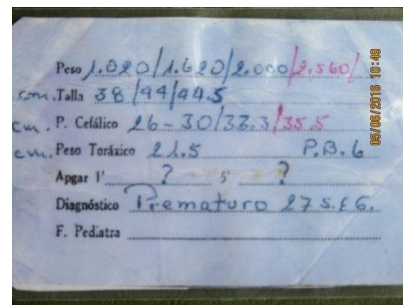 Peso 1.020/1.620/2.000/2.560/
cm. Talla 38/44/44.5
cm. P. Cefálico 26-30/33.3/35.5
cm. Peso Toráxico 21.5 P.B.6
Apgar 1' ? 5' ?
Diagnóstico Prematuro 27 S.EG.
F. Pediatra
05/06/2016 10:49